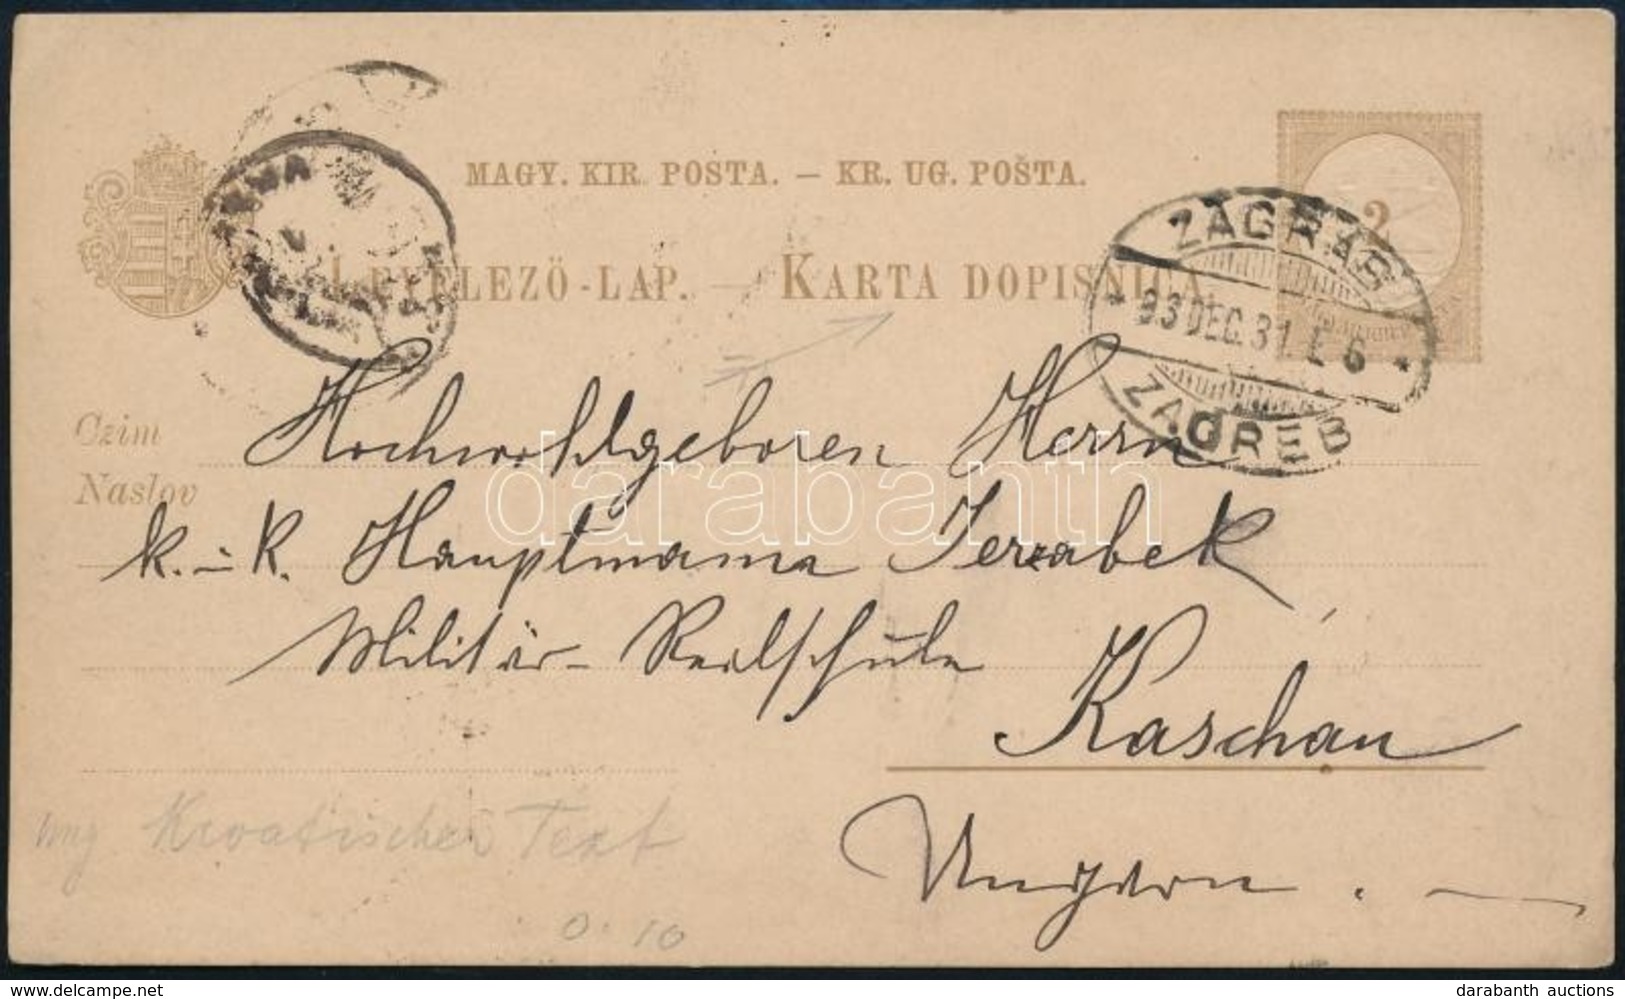 MAGY. KIR. POSTA. — KR. UG. POŠTA.
LEVELEZŐ-LAP. — KARTA DOPISNICA.
2
ZÁGRÁB
* 93 DEC. 31 6 *
ZAGREB
Czim
Naslov
Hochwohlgeboren Herrn
k. – k. Hauptmann Jerzabek
Militär-Realschule
Kaschau
Ungarn.
ung Kroatischer Text
0.10
darabanth
delcampe.net
darabanth auctions